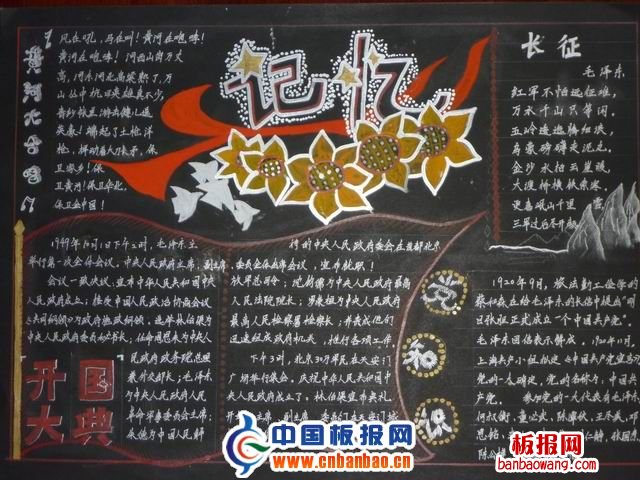 黄河大合唱
风在吼，马在叫！黄河在咆哮！
黄河在咆哮！河西山岗万丈
高，河东河北高粱熟了，万
山丛中抗日英雄真不少，
青纱帐里游击健儿逞
英豪！端起了土枪洋
枪，挥动着大刀长矛，保
卫家乡！保
卫黄河！保卫华北，
保卫全中国！
记忆
长征
毛泽东
红军不怕远征难，
万水千山只等闲。
五岭逶迤腾细浪，
乌蒙磅礴走泥丸。
金沙水拍云崖暖，
大渡桥横铁索寒。
更喜岷山千里雪
三军过后尽开颜
开国
大典
1949年10月1日下午2时，毛泽东主
举行第一次全体会议，中央人民政府主席，副主席
会议一致决议，宣布中华人民共和国中央
人民政府成立；接受中国人民政治协商会议
《共同纲领》为政府施政纲领，选举林伯渠为
中央人民政府委员会秘书长，任命周恩来为中央
人民政府政务院总理
兼外交部长；毛泽东
为中央人民政府人民
革命军事委员会主席；
朱德为中国人民解
持的中央人民政府委员会在首都北京
委员会委员出席会议，宣布就职！
放军总司令；沈钧儒为中央人民政府最高
人民法院院长；罗荣桓为中央人民政府
最高人民检察署检察长；并责成他们
迅速组成政府机关，推行各项工作
下午3时，北京30万军民在天安门
广场举行集会。庆祝中华人民共和国中
央人民政府成立。林伯渠宣布典礼
党
知
识
1920年9月，被法勤工俭学的
蔡和森在给毛泽东的长信中提出"明
目张胆正式成立一个中国共产党"。
毛泽东回信表示赞成。1920年11月，
上海共产小组拟定《中国共产党宣言》
党的一大确定，党的名称为，中国共
产党。
参加党的一大代表有：毛泽东、
何叔衡、董必武、陈潭秋、王尽美、邓
恩铭、
陈公博、
中国板报网
www.cnbanbao.cn
板报网
banbaowang.com